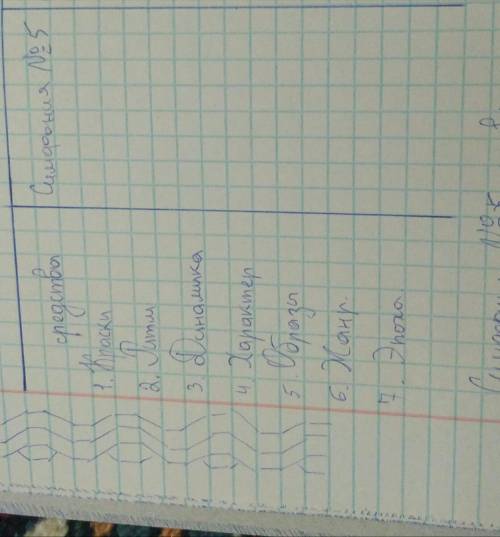 средства
Симфония №5
1. Краски
2. Ритм
3. Динамика
4. Характер
5. Образы
6. Жанр.
7. Эпоха.
№5